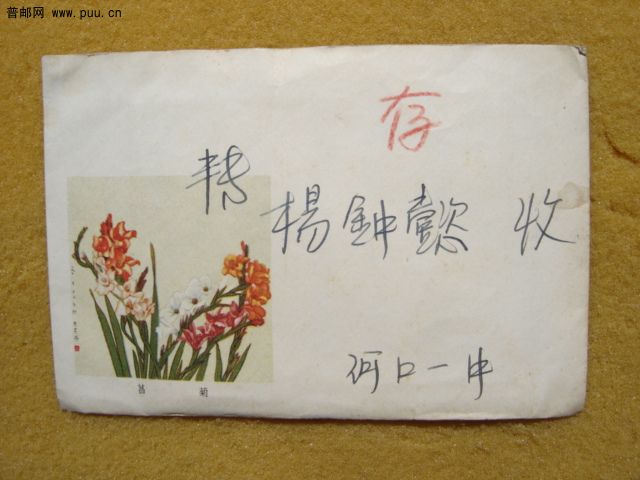 普邮网 www.puu.cn
存
转
楊鈡懿 收
河口一中
菖 菊